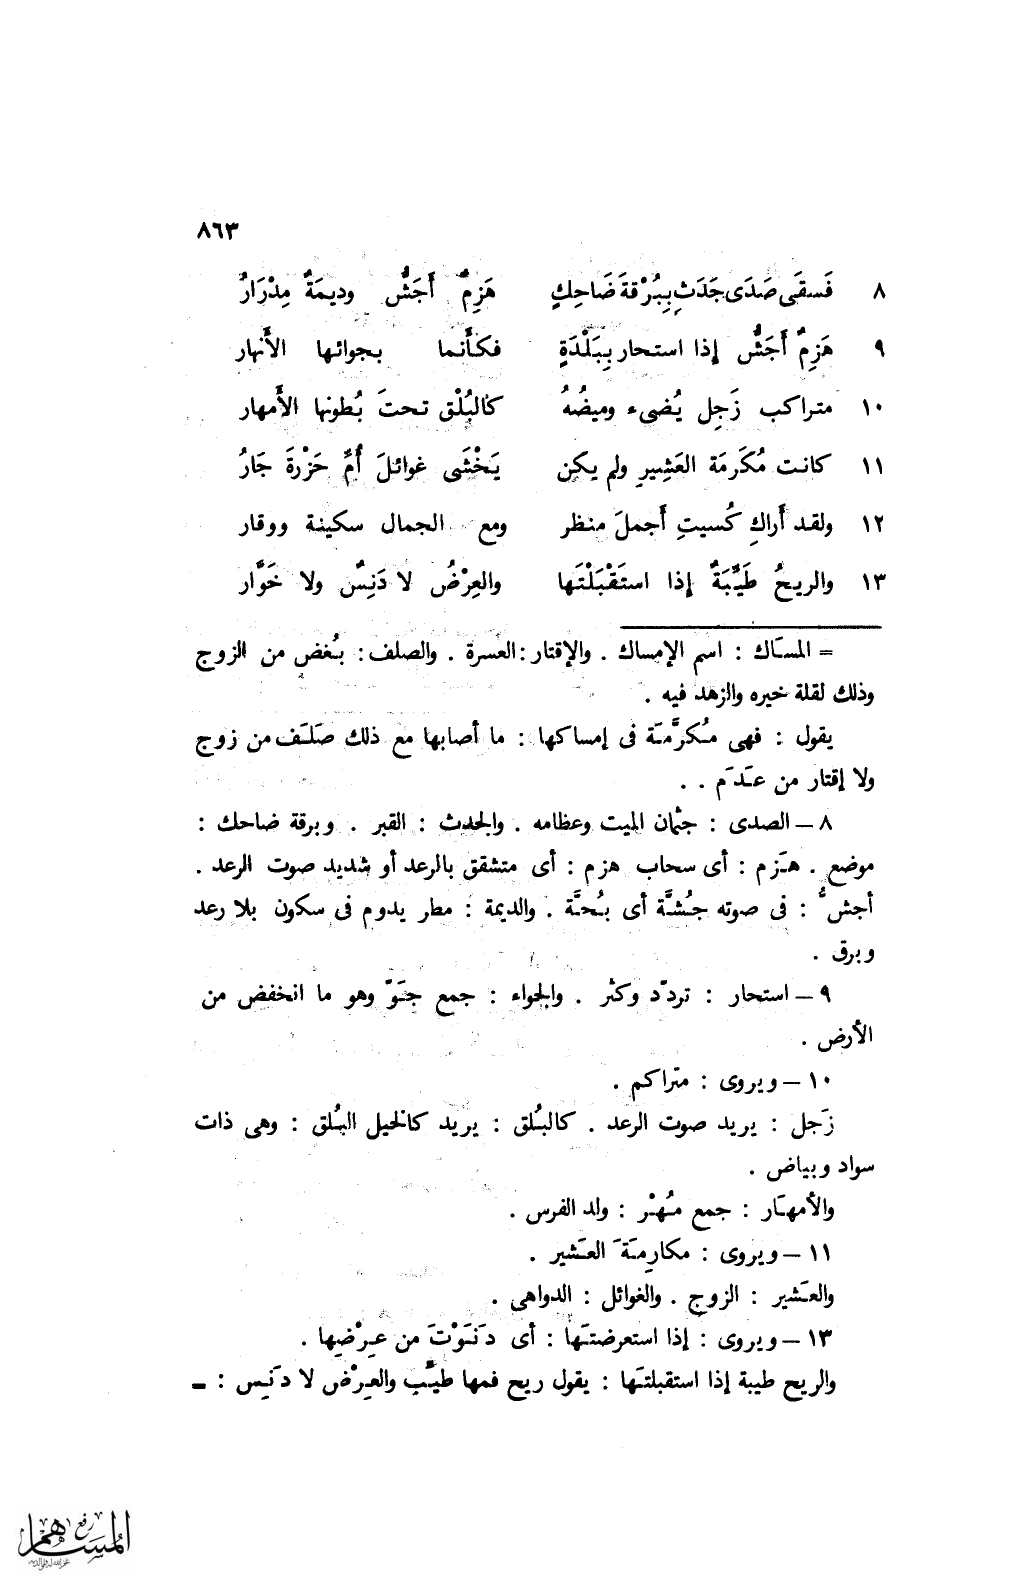 ٨٦٣
٨ فَسقَى صَدَى جَدَثٍ بِبُرْقةَ ضَاحِكٍ هَزِمٌ أَجَشُّ وديمَةٌ مِدْرَارُ
٩ هَزِمٌ أَجَشُّ إذا استحار بِبَلْدَةٍ فكَأَنما بجوائها الأَنهار
١٠ متراكب زَجِل يُضىء وميضُهُ كالبُلْق تحتَ بُطونها الأَمهار
١١ كانت مُكَرمَة العَشِيرِ ولم يكن يَخْشَى غوائلَ أُمِّ حَزْرةَ جَارُ
١٢ ولقد أَراكِ كُسيتِ أَجملَ منظر ومع الجمال سكينة ووقار
١٣ والريحُ طَيِّبَةٌ إذا استَقْبَلْتَها والعِرْضُ لا دَنِسٌ ولا خَوَّار
= المسَاك : اسم الإمساك . والإقتار : العُسرة . والصلف : بُغض من الزوج
وذلك لقلة خيره والزهد فيه .
يقول : فهى مُكرَّمَة فى إمساكها : ما أصابها مع ذلك صَلَف من زوج
ولا إقتار من عَدَم . .
٨ – الصدى : جثمان الميت وعظامه . والجدث : القبر . وبرقة ضاحك :
موضع . هَزم : أى سحاب هزم : أى متشقق بالرعد أو شديد صوت الرعد .
أجشُّ : فى صوته جُشَّة أى بُحَّة . والديمة : مطر يدوم فى سكون بلا رعد
وبرق .
٩ – استحار : تردّد وكثر . والجواء : جمع جَوّ وهو ما انخفض من
الأرض .
١٠ – ويروى : متراكم .
زَجل : يريد صوت الرعد . كالبُلق : يريد كالخيل البُلق : وهى ذات
سواد وبياض .
والأمهَار : جمع مُهْر : ولد الفرس .
١١ – ويروى : مكارِمَةَ العَشير .
والعَشير : الزوج . والغوائل : الدواهى .
١٣ – ويروى : إذا استعرضتَها : أى دَنَوْتَ من عِرْضِها .
والريح طيبة إذا استقبلتَها : يقول ريح فمها طيِّب والعِرْض لا دَنِس : =
رفع
المساهم